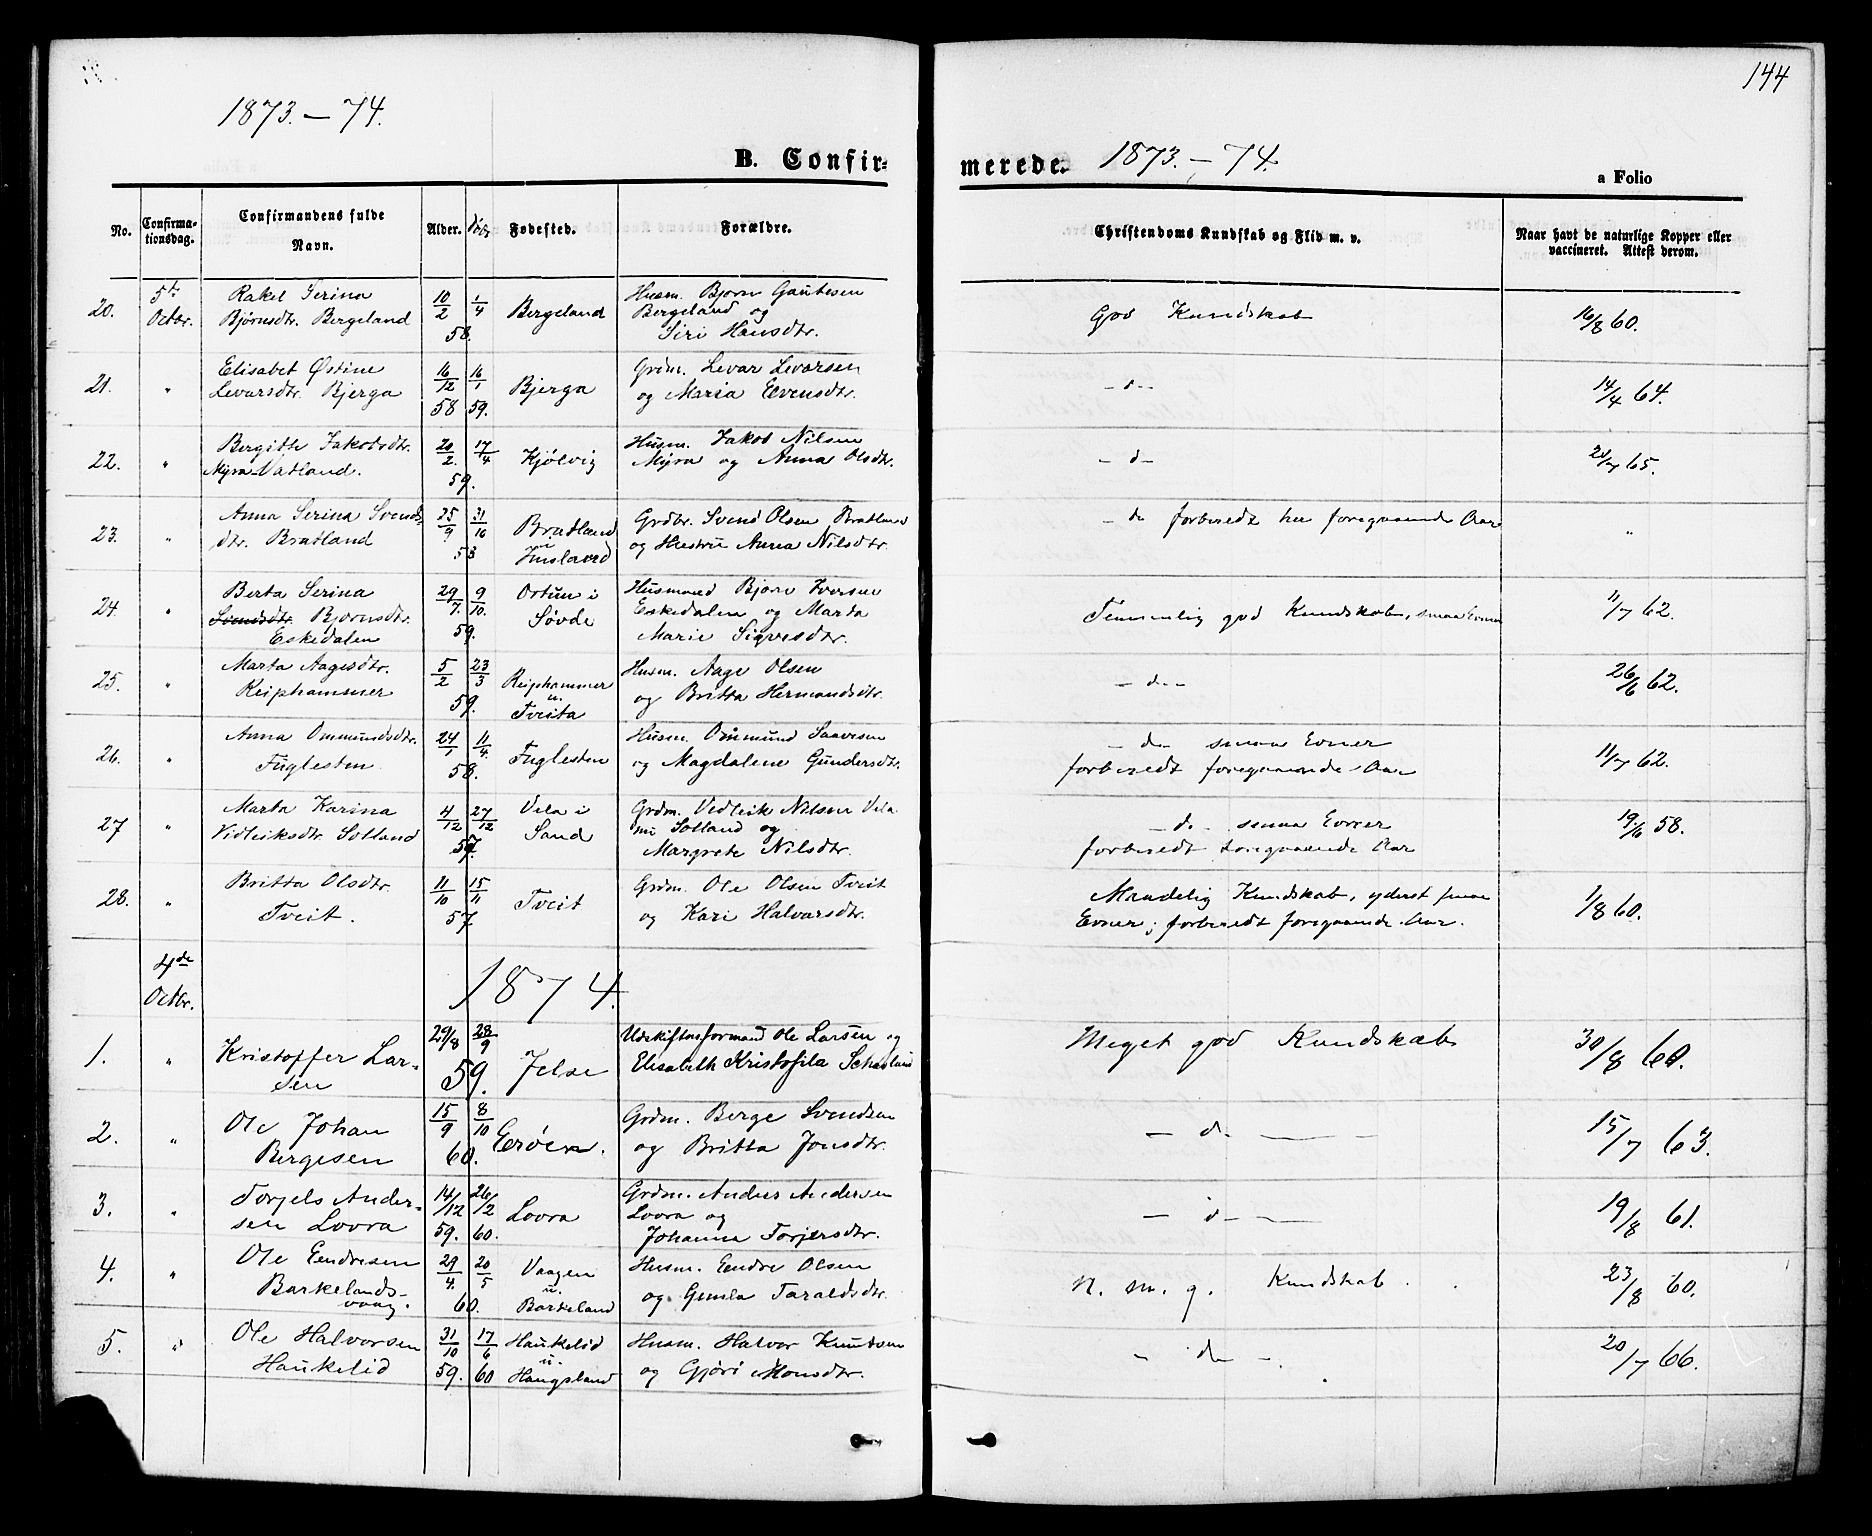 144
1873.–74.
B. Confirmerede. 1873.–74.
a Folio
No. Confirmationsdag. Confirmandens fulde Navn. Alder. Fødested. Forældre. Christendoms Kundskab og Flid m. v. Naar havt de naturlige Kopper eller vaccineret. Attest derom.
20. 5te Octbr. Rakel Serina Bjørnsdtr. Bergeland 10/2 1/4 58. Bergeland Husm. Bjørn Gautesen Bergeland og Siri Hansdtr. God Kundskab 16/8 60.
21. " Elisabet Østine Levarsdtr. Bjerga 16/12 58 16/1 59. Bjerga Grdm. Levar Levarsen og Maria Evensdtr. -d-- 14/4 64.
22. " Bergitte Jakobsdtr. Myra-Vatland. 20/2. 17/4 59. Kjølvig Husm. Jakob Nilsen Myra og Anna Olsdtr. -d- 20/7 65.
23. " Anna Serina Svendsdtr. Bratland 25/9 31/10 53 Bratland i Suslavrd Grdbr. Svend Olsen Bratland og Hustru Anna Nilsdtr. -do forberedt her foregaaende Aar "
24. " Berta Serina Svendsdtr. Bjørnsdtr. Eskedalen 29/7. 9/10. 59. Ostun i Søvde Husmand Bjørn Iversen Eskedalen og Marta Marie Sigvesdtr. Temmelig god Kundskab, smaa Evner 11/7 62.
25. " Marta Aagesdtr. Reiphammer 5/2 23/3 59. Reiphammer u. Tveita Husm. Aage Olsen og Britta Hermandsdtr. -d-- 26/6 62.
26. " Anna Ommundsdtr. Fuglesten 24/1 11/4 58. Fuglesten Husm. Ommund Saavesen og Magdalene Gundersdtr. -d- smaa Evner forberedt foregaaende Aar 11/7 62.
27 " Marta Karina Vidleiksdtr. Sotland 4/12 27/12 57. Vela i Sand Grdm. Vedleik Nilsen Vela nu Sotland og Margrete Nilsdtr. -d- smaa Evner forberedt foregaaende Aar 19/6 58.
28. " Britta Olsdtr. Tveit. 11/10 15/11 57 Tveit Grdm. Ole Olsen Tveit og Kari Halvarsdtr. Maadelig Kundskab, yderst smaa Evner; forberedt foregaaende Aar. 1/8 60.
4de Octbr. 1874.
1. " Kristoffer Larsen 29/8 28/9 59. Jelse Udskiftnsformand Ole Larsen og Elisabeth Kristofila Meget god Kundskab 30/8 60.
2. " Ole Johan Bergesen 15/9 8/10 60. Erøen. Grdm. Berge Svendsen og Britta Jonsdtr. -d- 15/7 63.
3. " Torjels Andersen Lovra 14/12 59. 26/2 60. Lovra Grdm. Anders Andersen Lovra og Johanna Torjersdtr. -d- 19/8 61.
4. " Ole Eendresen Barkelandsvaag. 29/4. 20/5 60. Vaagen u. Barkeland Husm. Eendre Olsen og Gunla Taraldsdtr. N. m. g. Kundskab. 23/8 60.
5. " Ole Halvorsen Haukelid 31/10 59. 17/6 60 Haukelid u. Haugsland Husm. Halvor Knutsen og Gjøri Monsdtr. -do-. 20/7 66.